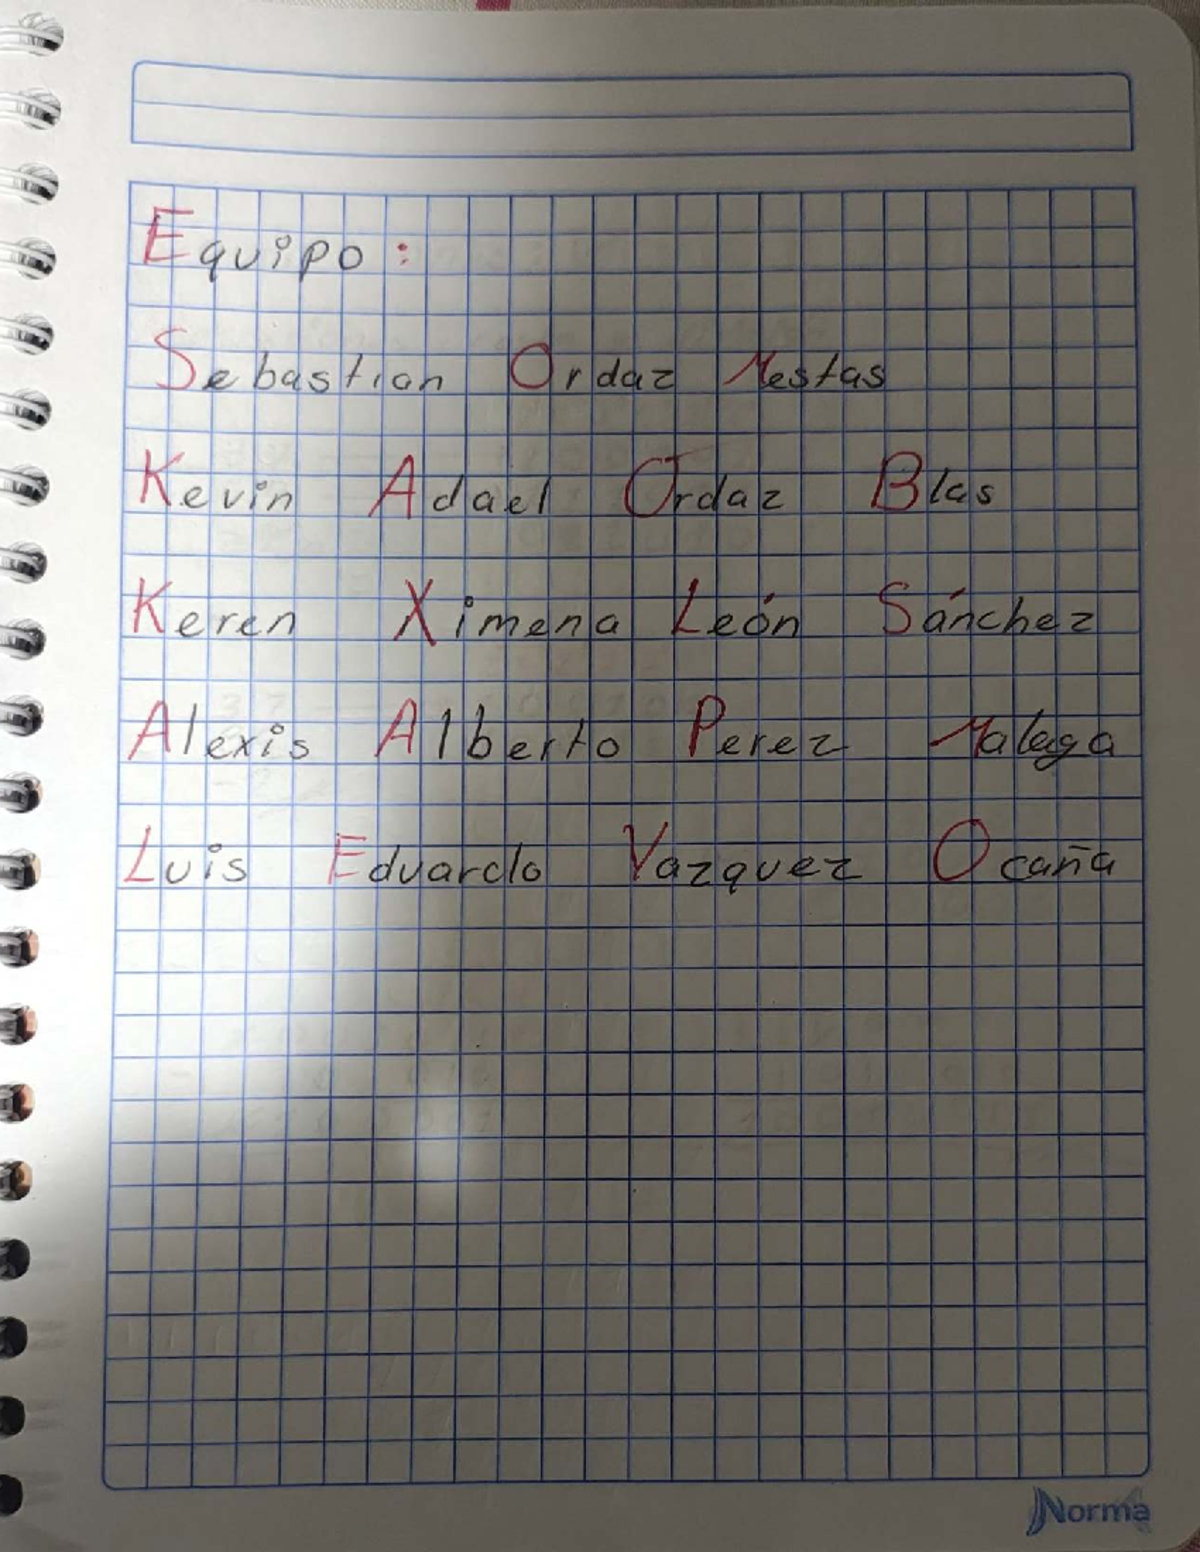 Equipo:
Sebastian Ordaz Mestas
Kevin Adael Ordaz Blas
Keren Ximena León Sánchez
Alexis Alberto Perez Malaga
Luis Eduardo Vazquez Ocaña
Norma